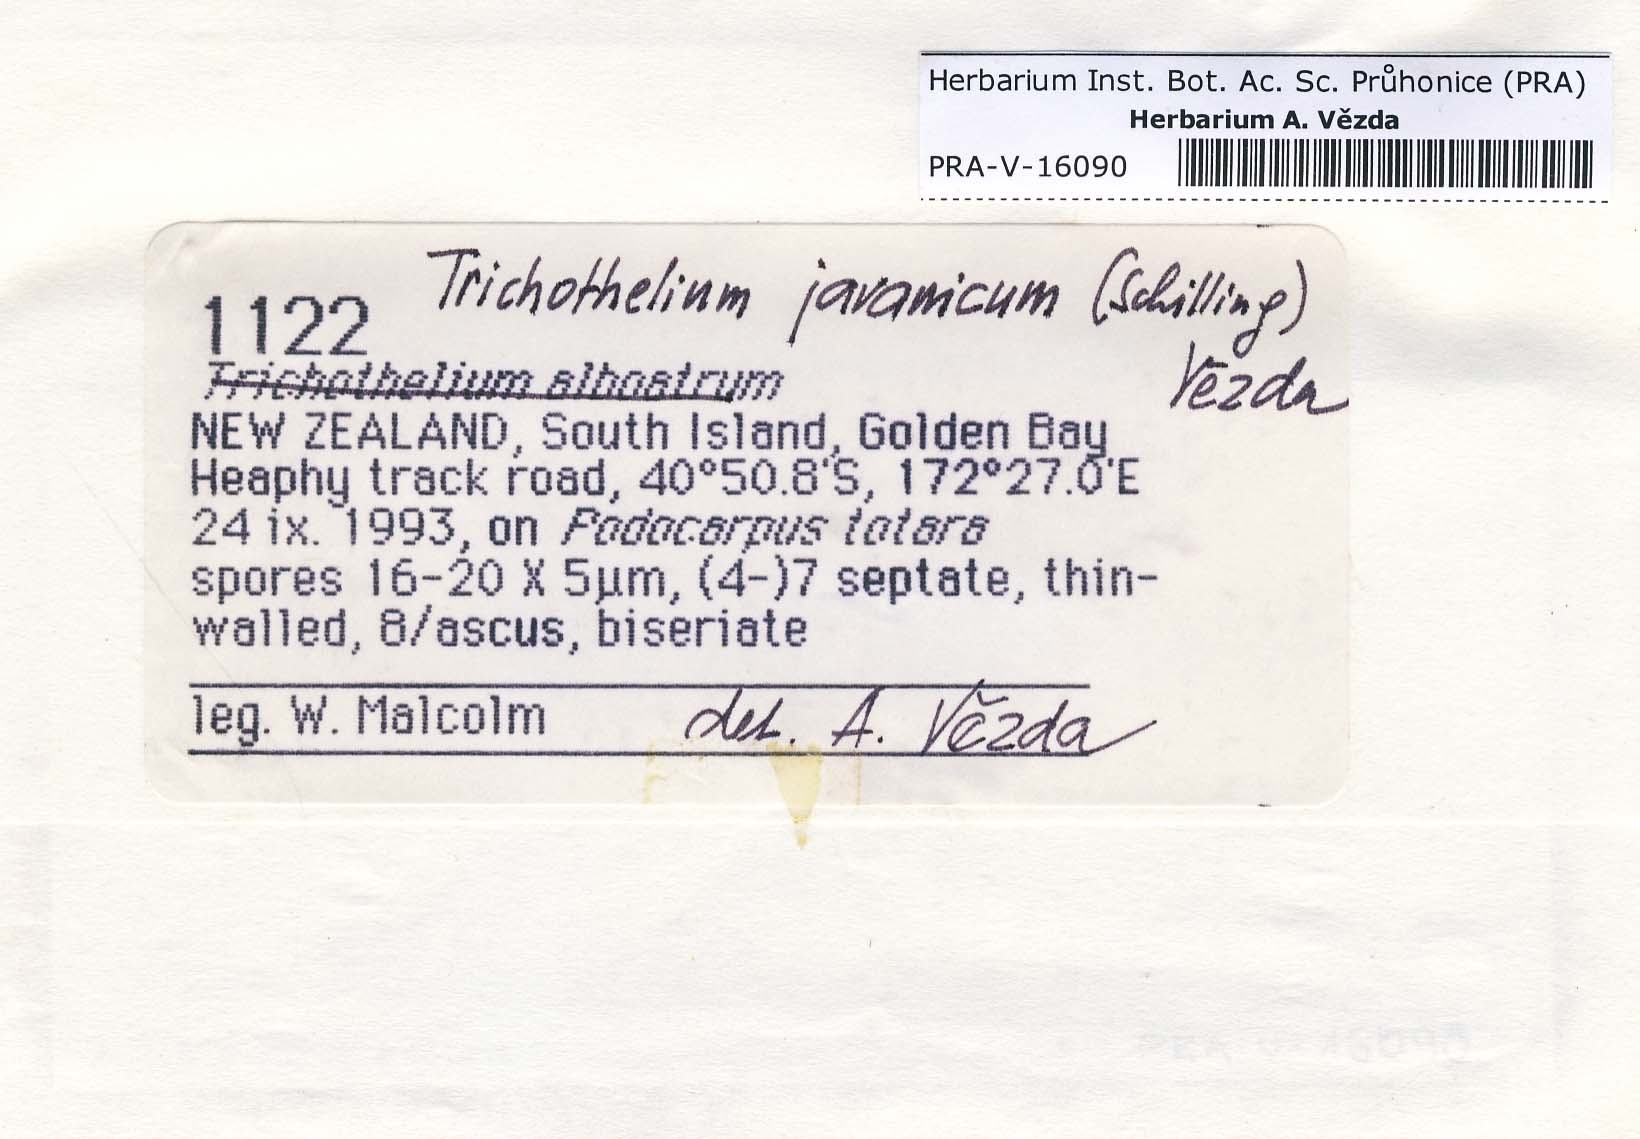 Herbarium Inst. Bot. Ac. Sc. Průhonice (PRA)
Herbarium A. Vězda
PRA-V-16090
Trichothelium javanicum (Schilling)
Vězda
1122
Trichothelium albostrum
NEW ZEALAND, South Island, Golden Bay
Heaphy track road, 40°50.8'S, 172°27.0'E
24 ix. 1993, on Podocarpus totara
spores 16-20 X 5µm, (4-)7 septate, thin-
walled, 8/ascus, biseriate
leg. W. Malcolm det. A. Vězda